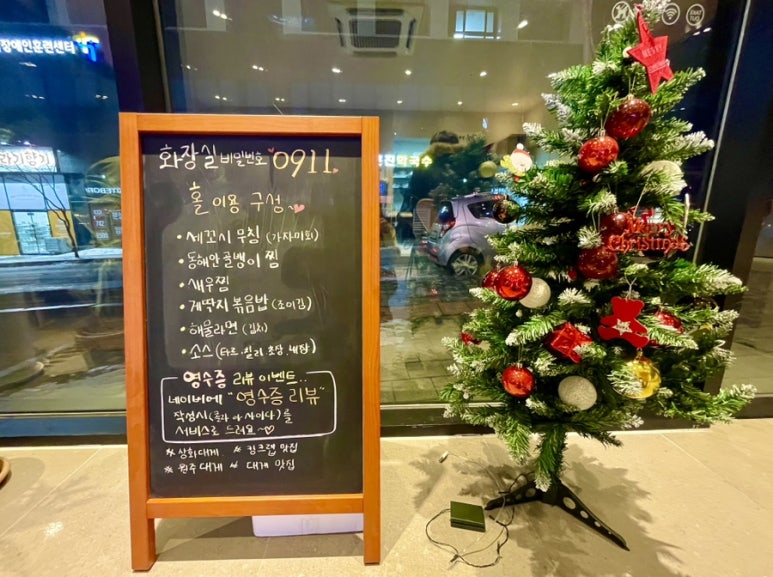 장애인훈련센터
화장실 비밀번호 0911
홀 이용 구성
• 세꼬시 무침 (가자미회)
• 동해안 골뱅이 찜
• 새우찜
• 게딱지 볶음밥 (초이김)
• 해물라면 (김치)
• 소스 (타르, 칠리, 초장, 내장)
영수증 리뷰 이벤트..
네이버에 "영수증 리뷰"
작성시 (콜라 or 사이다)를
서비스로 드려요~♡
※ 상화대게 ※ 킹크랩 맛집
※ 원주 대게 ※ 대게 맛집
Merry
Christmas